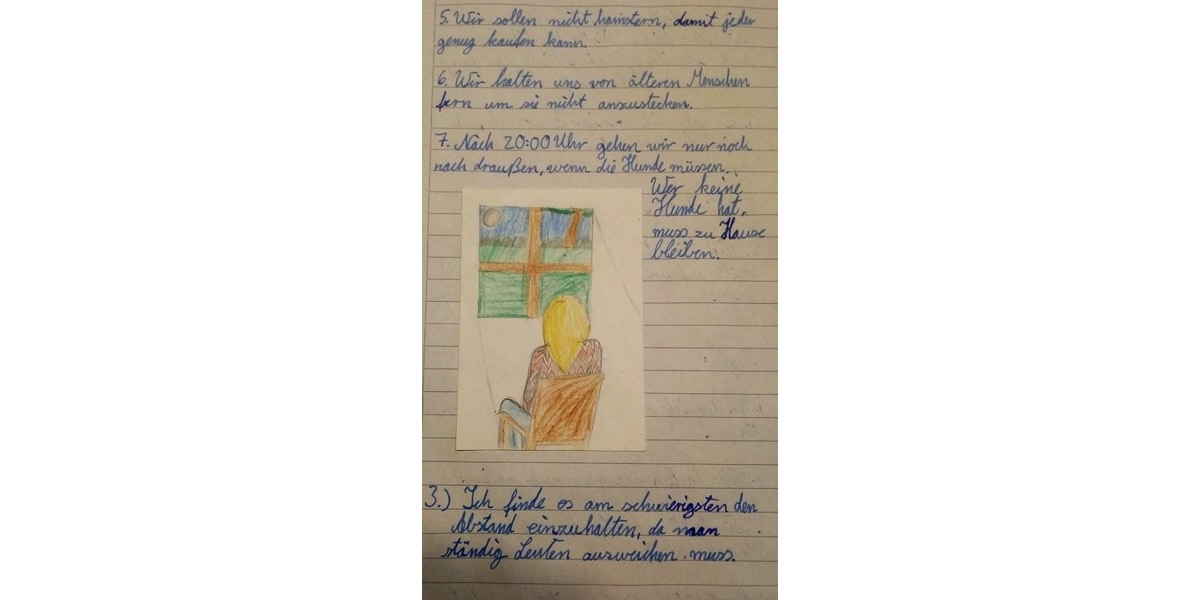 5. Wir sollen nicht hamstern, damit jeder
genug kaufen kann.
6. Wir halten uns von älteren Menschen
fern um sie nicht anzustecken.
7. Nach 20:00 Uhr gehen wir nur noch
nach draußen, wenn die Hunde müssen.
Wer keine
Hunde hat,
muss zu Hause
bleiben.
3.) Ich finde es am schwierigsten den
Abstand einzuhalten, da man
ständig Leuten ausweichen muss.